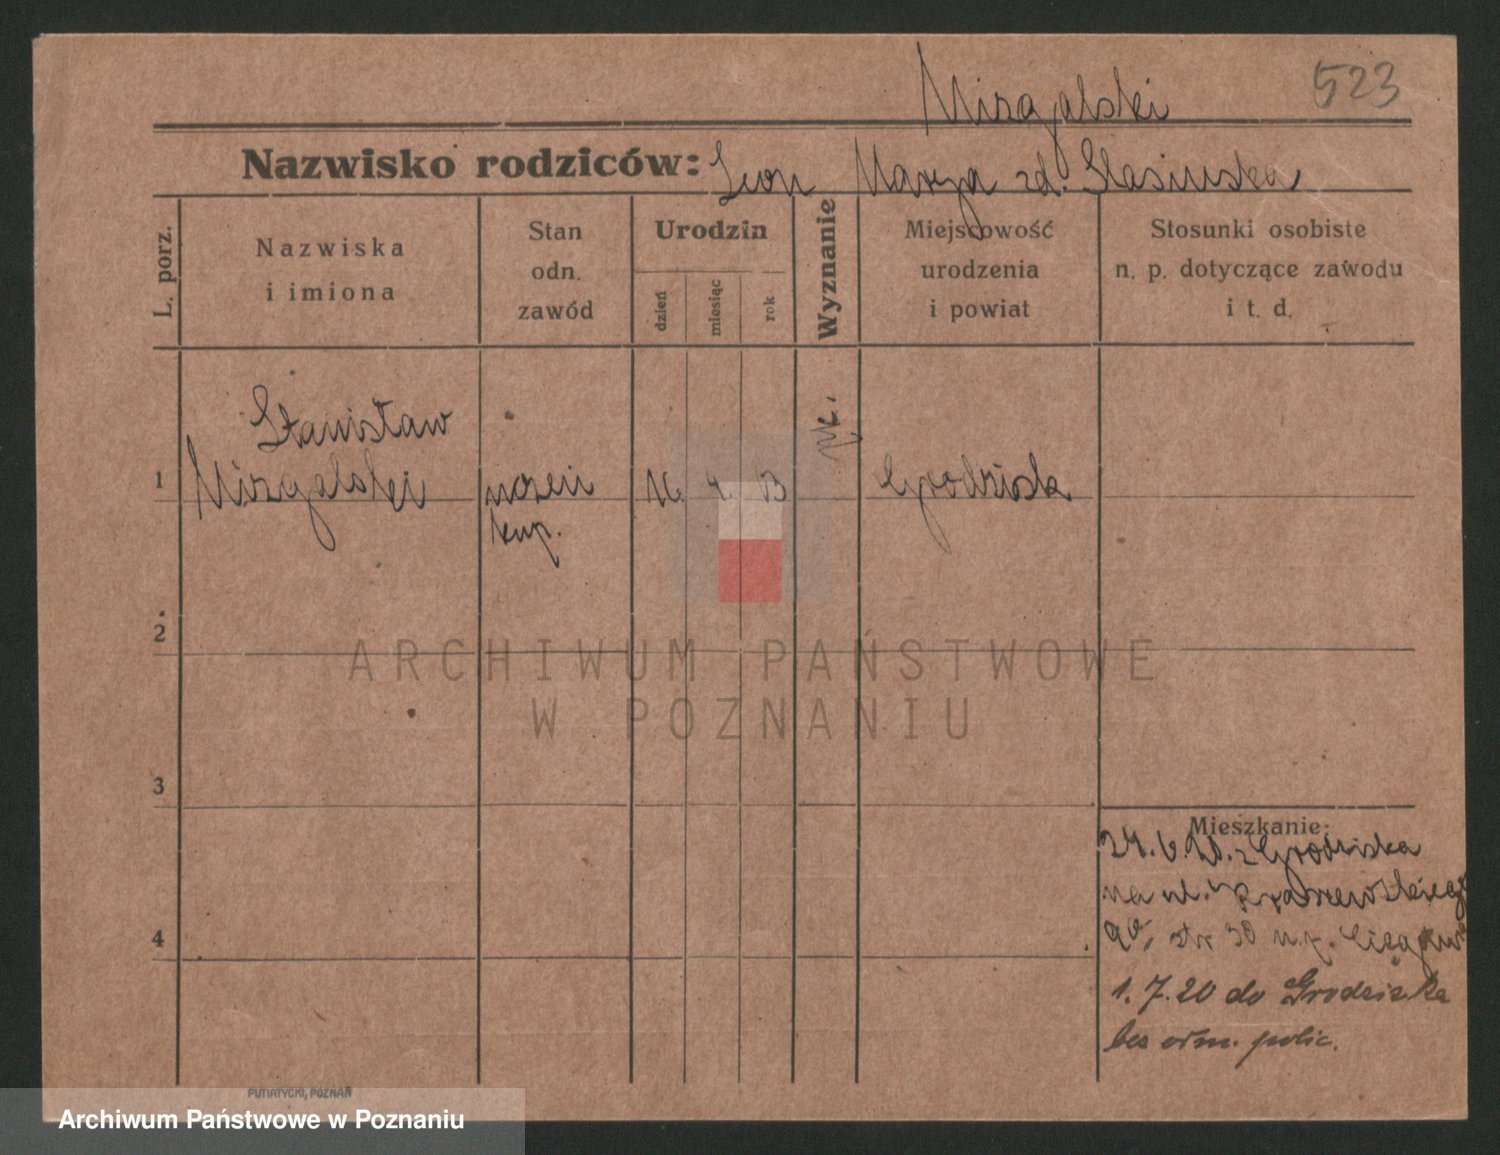 523
Mizgalski
Nazwisko rodziców: Leon Marja zd. Stasińska
L. porz.
Nazwiska
i imiona
Stan
odn.
zawód
Urodzin
dzień
miesiąc
rok
Wyznanie
Miejscowość
urodzenia
i powiat
Stosunki osobiste
n. p. dotyczące zawodu
i t. d.
1
Stanisław
Mizgalski
uczeń
kup.
16. 4. 03
Grodzisk
2
3
4
Mieszkanie:
24.6.20. z Grodziska
na ul.
str 30 u.p.
1.7.20 do Grodziska
bez odm. polic.
PUTIATYCKI, POZNAŃ
ARCHIWUM PAŃSTWOWE
W POZNANIU
Archiwum Państwowe w Poznaniu